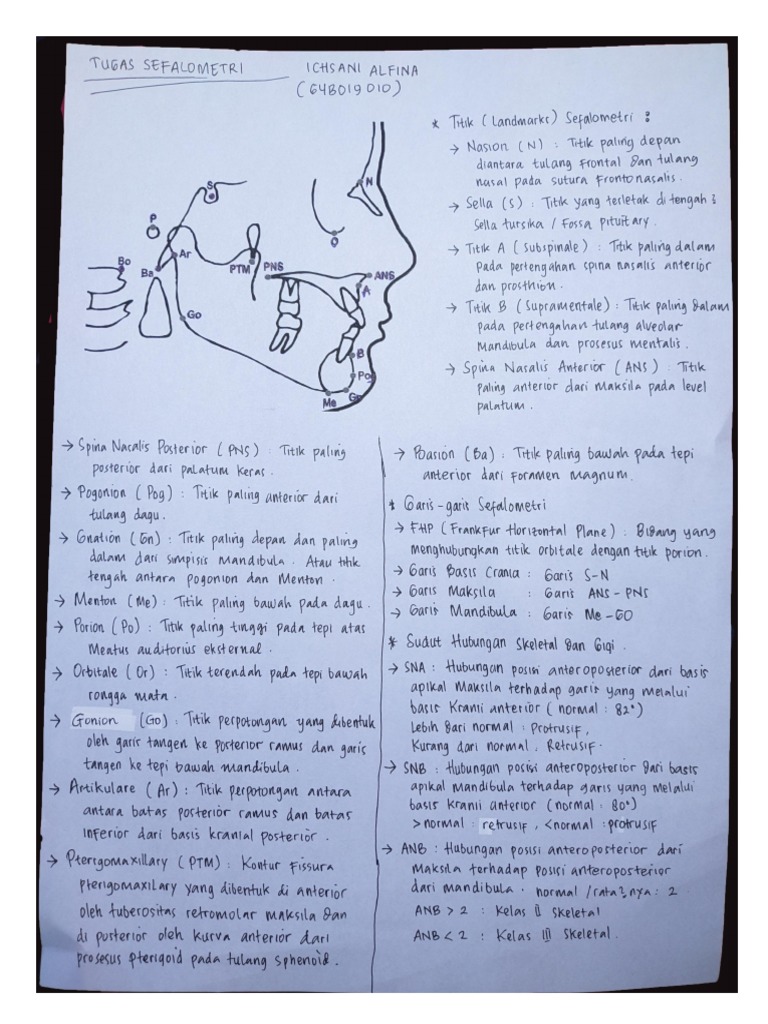 TUGAS SEFALOMETRI
ICHSANI ALFINA
(648019010)
S
N
P
O
Ar
Bo
Ba
PTM
PNS
ANS
A
Go
B
Pog
Gn
Me
* Titik (Landmarks) Sefalometri :
→ Nasion (N) : Titik paling depan
diantara tulang frontal dan tulang
nasal pada sutura Frontonasalis.
→ Sella (S) : Titik yang terletak di tengah²
Sella tursika / Fossa pituitary.
→ Titik A (Subspinale) : Titik paling dalam
pada pertengahan spina nasalis anterior
dan prosthion.
→ Titik B (Supramentale) : Titik paling dalam
pada pertengahan tulang alveolar
Mandibula dan prosesus mentalis.
→ Spina Nasalis Anterior (ANS) : Titik
paling anterior dari maksila pada level
palatum.
→ Spina Nasalis Posterior (PNS) : Titik paling
posterior dari palatum keras.
→ Pogonion (Pog) : Titik paling anterior dari
tulang dagu.
→ Gnation (Gn) : Titik paling depan dan paling
dalam dari simpisis mandibula. Atau titik
tengah antara pogonion dan Menton.
→ Menton (Me) : Titik paling bawah pada dagu.
→ Porion (Po) : Titik paling tinggi pada tepi atas
Meatus auditorius eksternal.
→ Orbitale (Or) : Titik terendah pada tepi bawah
rongga mata.
→ Gonion (Go) : Titik perpotongan yang dibentuk
oleh garis tangen ke posterior ramus dan garis
tangen ke tepi bawah mandibula.
→ Artikulare (Ar) : Titik perpotongan antara
antara batas posterior ramus dan batas
inferior dari basis kranial posterior.
→ Pterigomaxillary (PTM) : Kontur Fissura
pterigomaxilary yang dibentuk di anterior
oleh tuberositas retromolar maksila dan
di posterior oleh kurva anterior dari
prosesus pterigoid pada tulang sphenoid.
→ Basion (Ba) : Titik paling bawah pada tepi
anterior dari foramen magnum.
* Garis-garis Sefalometri
→ FHP (Frankfur Horizontal Plane) : Bidang yang
menghubungkan titik orbitale dengan titik porion.
→ Garis Basis Crania : Garis S-N
→ Garis Maksila : Garis ANS - PNS
→ Garis Mandibula : Garis Me-GO
* Sudut Hubungan Skeletal dan Gigi.
→ SNA : Hubungan posisi anteroposterior dari basis
apikal Maksila terhadap garis yang melalui
basis Kranii anterior (normal : 82°)
Lebih dari normal : Protrusif,
Kurang dari normal : Retrusif.
→ SNB : Hubungan posisi anteroposterior dari basis
apikal mandibula terhadap garis yang melalui
basis kranii anterior (normal : 80°)
>normal : retrusif, <normal : protrusif
→ ANB : Hubungan posisi anteroposterior dari
Maksila terhadap posisi anteroposterior
dari mandibula. normal /rata²nya : 2
ANB > 2 : Kelas II Skeletal
ANB < 2 : Kelas III Skeletal.